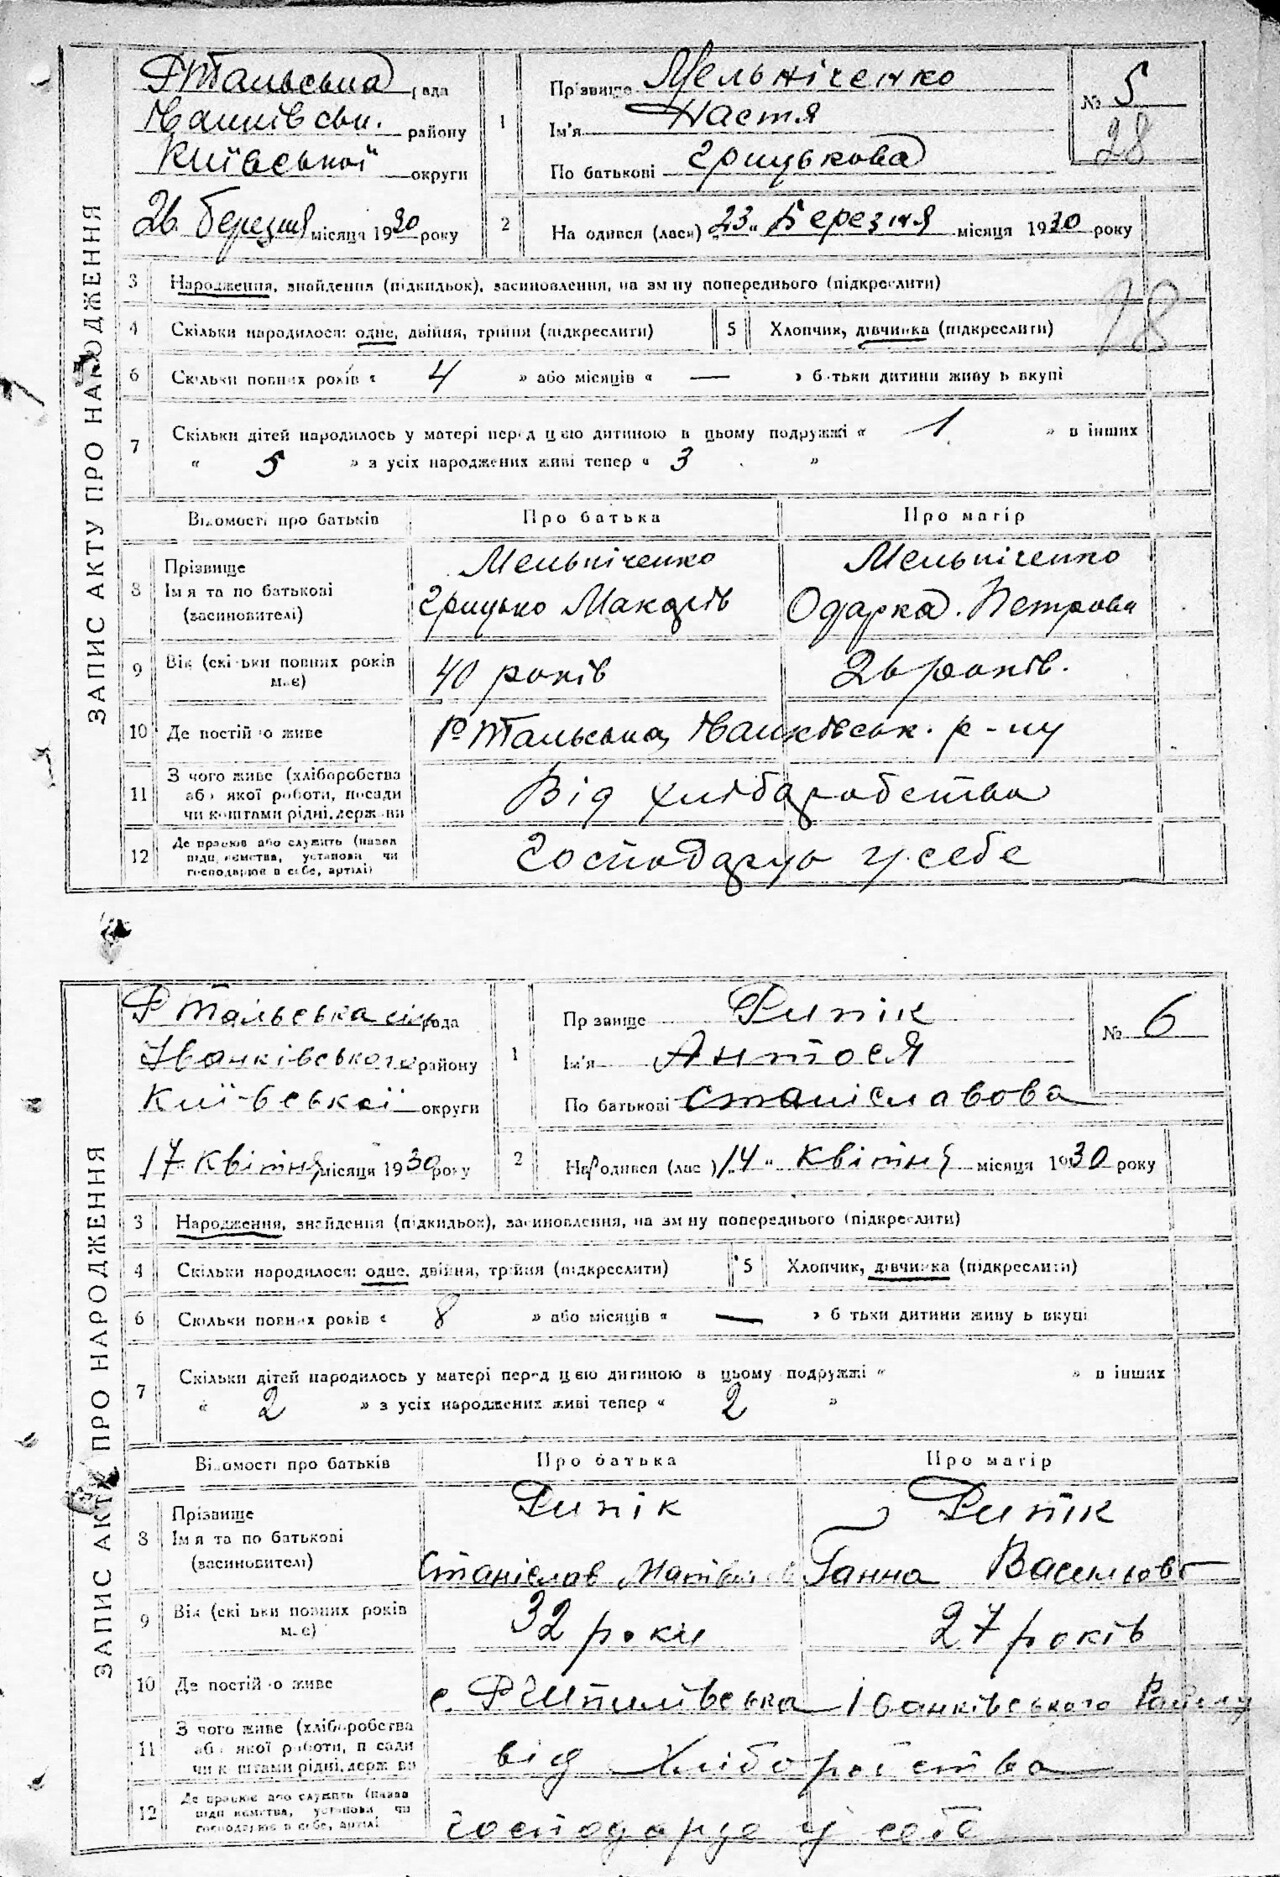 ЗАПИС АКТУ ПРО НАРОДЖЕННЯ
Р Тальська рада
Іванківськ. району
Київської округи
26 березня місяця 1930 року
1 Прізвище Мельніченко
Ім'я Настя
По батькові Грицькова
№ 5
28
2 На одився (лася) „23" Березня місяця 1930 року
3 Народження, знайдення (підкидьок), засиновлення, на зм ну попереднього (підкреслити)
28
4 Скільки народилося: одне, двійня, трійня (підкреслити) 5 Хлопчик, дівчинка (підкреслити)
6 Скільки повних років « 4 » або місяців « — » б тьки дитини живу ь вкупі
7 Скільки дітей народилось у матері перед цією дитиною в цьому подружжі « 1 » в інших
« 5 » з усіх народжених живі тепер « 3 »
Відомості про батьків Про батька Про матір
8 Прізвище Ім я та по батькові (засиновителі)
Мельніченко Мельніченко
Грицько Макарів Одарка Петрова
9 Вік (скі ьки повних років має) 40 років 26 років.
10 Де постій о живе Р Тальська, Іванківськ. р-ну
11 З чого живе (хліборобства
або якої роботи, посади
чи коштами рідні, держ ви
Від хліборобства
12 Де працює або служить (назва
підп иємства, установи чи
господарює в себе, артілі)
Господарую у себе
ЗАПИС АКТУ ПРО НАРОДЖЕННЯ
Р Тальська сіль рада
Іванківського району
Київської округи
17 Квітня місяця 1930 року
1 Пр звище Рипік
Ім'я Антося
По батькові Станіславова
№ 6
2 Народився (лас ) „14" Квітня місяця 1930 року
3 Народження, знайдення (підкидьок), засиновлення, на зм ну попереднього (підкреслити)
4 Скільки народилося: одне, двійня, трійня (підкреслити) 5 Хлопчик, дівчинка (підкреслити)
6 Скільки повних років « 8 » або місяців « — » б тьки дитини живу ь вкупі
7 Скільки дітей народилось у матері перед цією дитиною в цьому подружжі « » в інших
« 2 » з усіх народжених живі тепер « 2 »
Відомості про батьків Про батька Про матір
8 Прізвище Ім я та по батькові (засиновителі)
Рипік Рипік
Станіслав Ганна Васильов
9 Вік (скі ьки повних років має) 32 роки 27 років
10 Де постій о живе с. Р Іванківського Району
11 З чого живе (хліборобства
або якої роботи, п сади
чи к штами рідні, держ ви
від Хліборобства
12 Де працює або служить (назва
підп иємства, установи чи
господарює в себе, артілі
господарує у себе